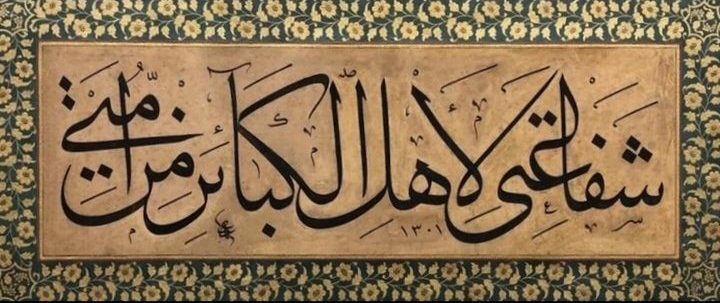 شفاعتي لأهل الكبائر من أمتي
١٣٠١